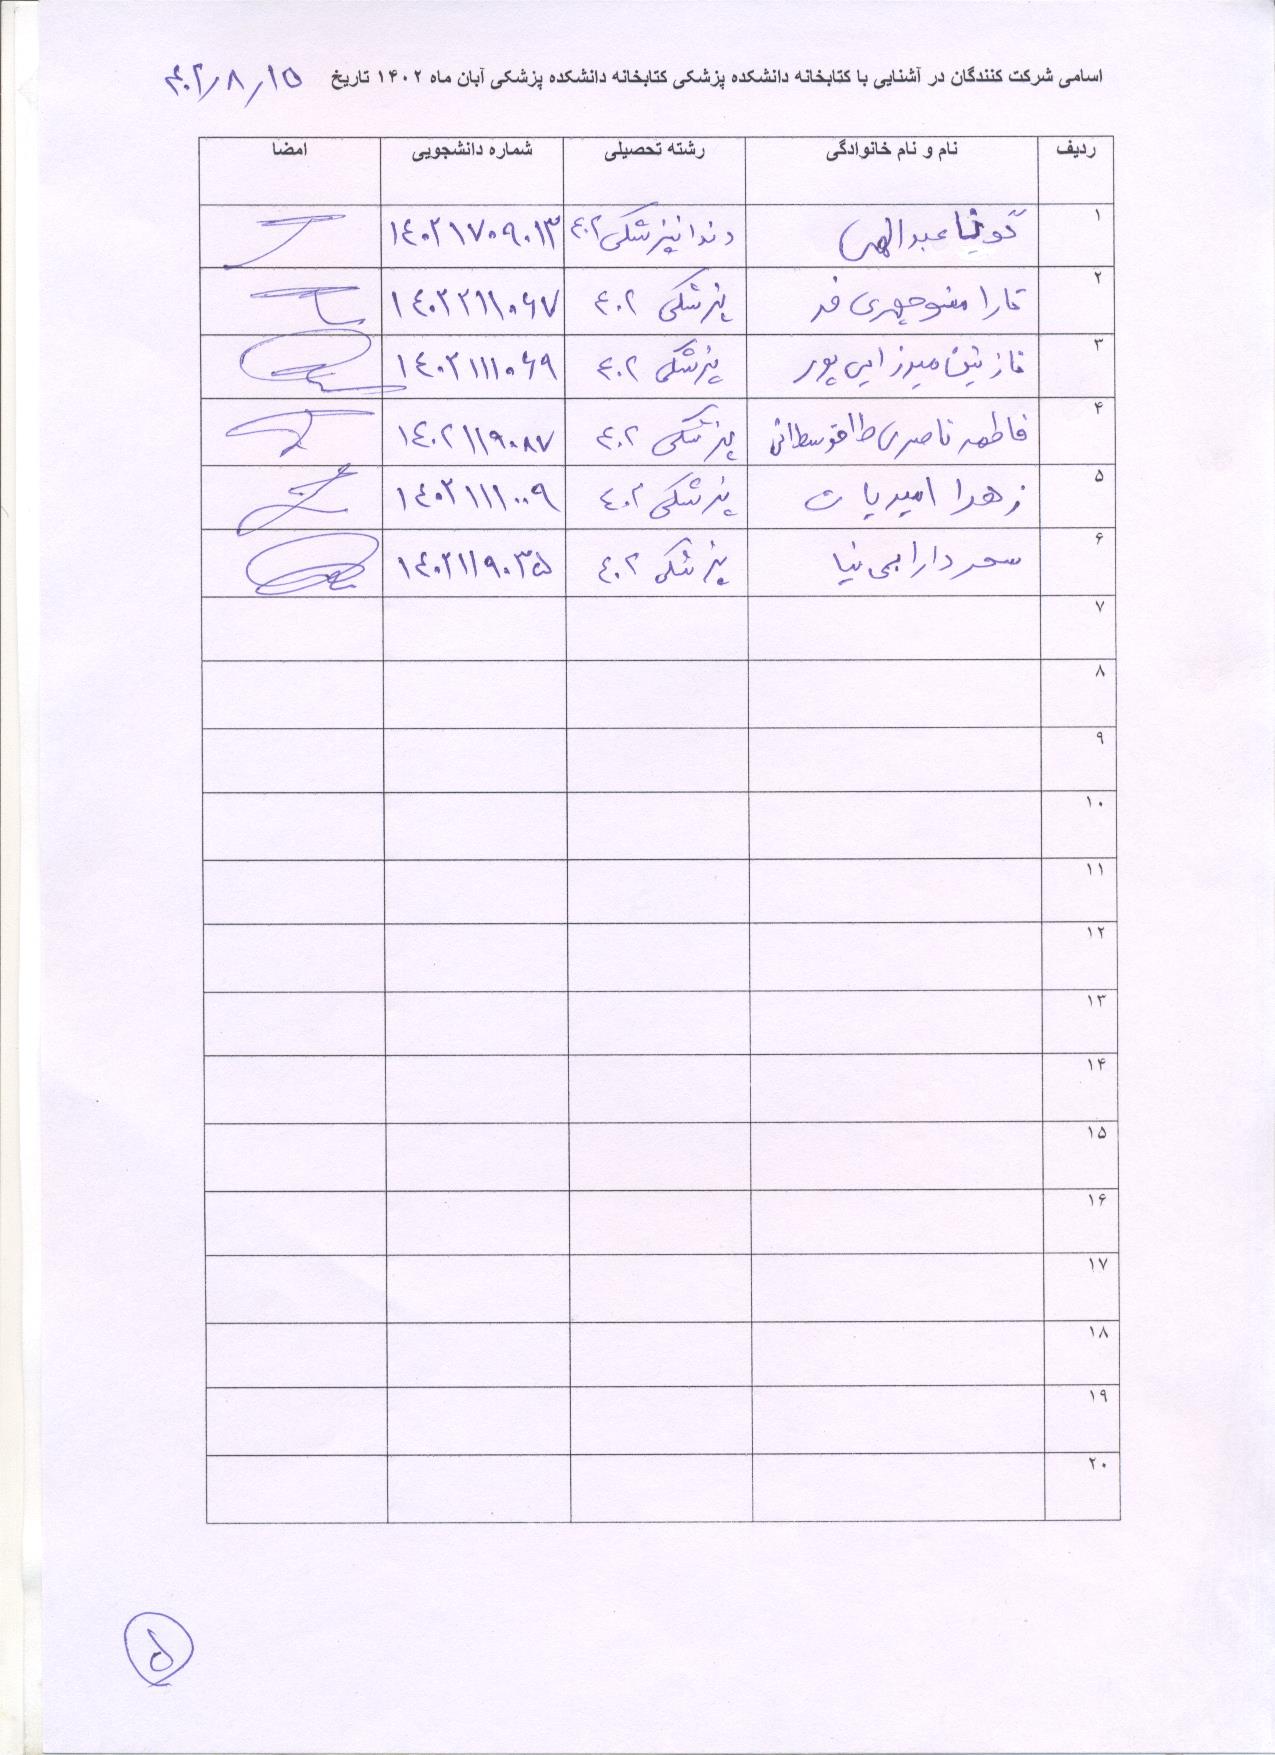 اسامی شرکت کنندگان در آشنایی با کتابخانه دانشکده پزشکی کتابخانه دانشکده پزشکی آبان ماه ۱۴۰۲ تاریخ ۴۰۲/۸/۱۵
ردیف نام و نام خانوادگی رشته تحصیلی شماره دانشجویی امضا
۱ عبدالهی دندانپزشکی ۴۰۲ ۱۴۰۲۱۷۰۹۰۱۳
۲ تارا منوچهری فر پزشکی ۴۰۲
۳ نازنین میرزایی پور پزشکی ۴۰۲ ۱۴۰۲۱۱۱۰۶۹
۴ فاطمه ناصری پزشکی ۴۰۲ ۱۴۰۲۱۱۹۰۸۷
۵ زهرا امیریان پزشکی ۴۰۲ ۱۴۰۲۱۱۱۰۰۹
۶ سحر دارابی نیا پزشکی ۴۰۲ ۱۴۰۲۱۱۹۰۳۵
۷
۸
۹
۱۰
۱۱
۱۲
۱۳
۱۴
۱۵
۱۶
۱۷
۱۸
۱۹
۲۰
۵